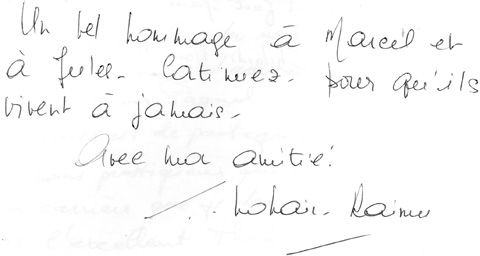 Un bel hommage à Marcel et
à Jules. Continuez. pour qu'ils
vivent à jamais.
Avec ma amitié!
Raimu